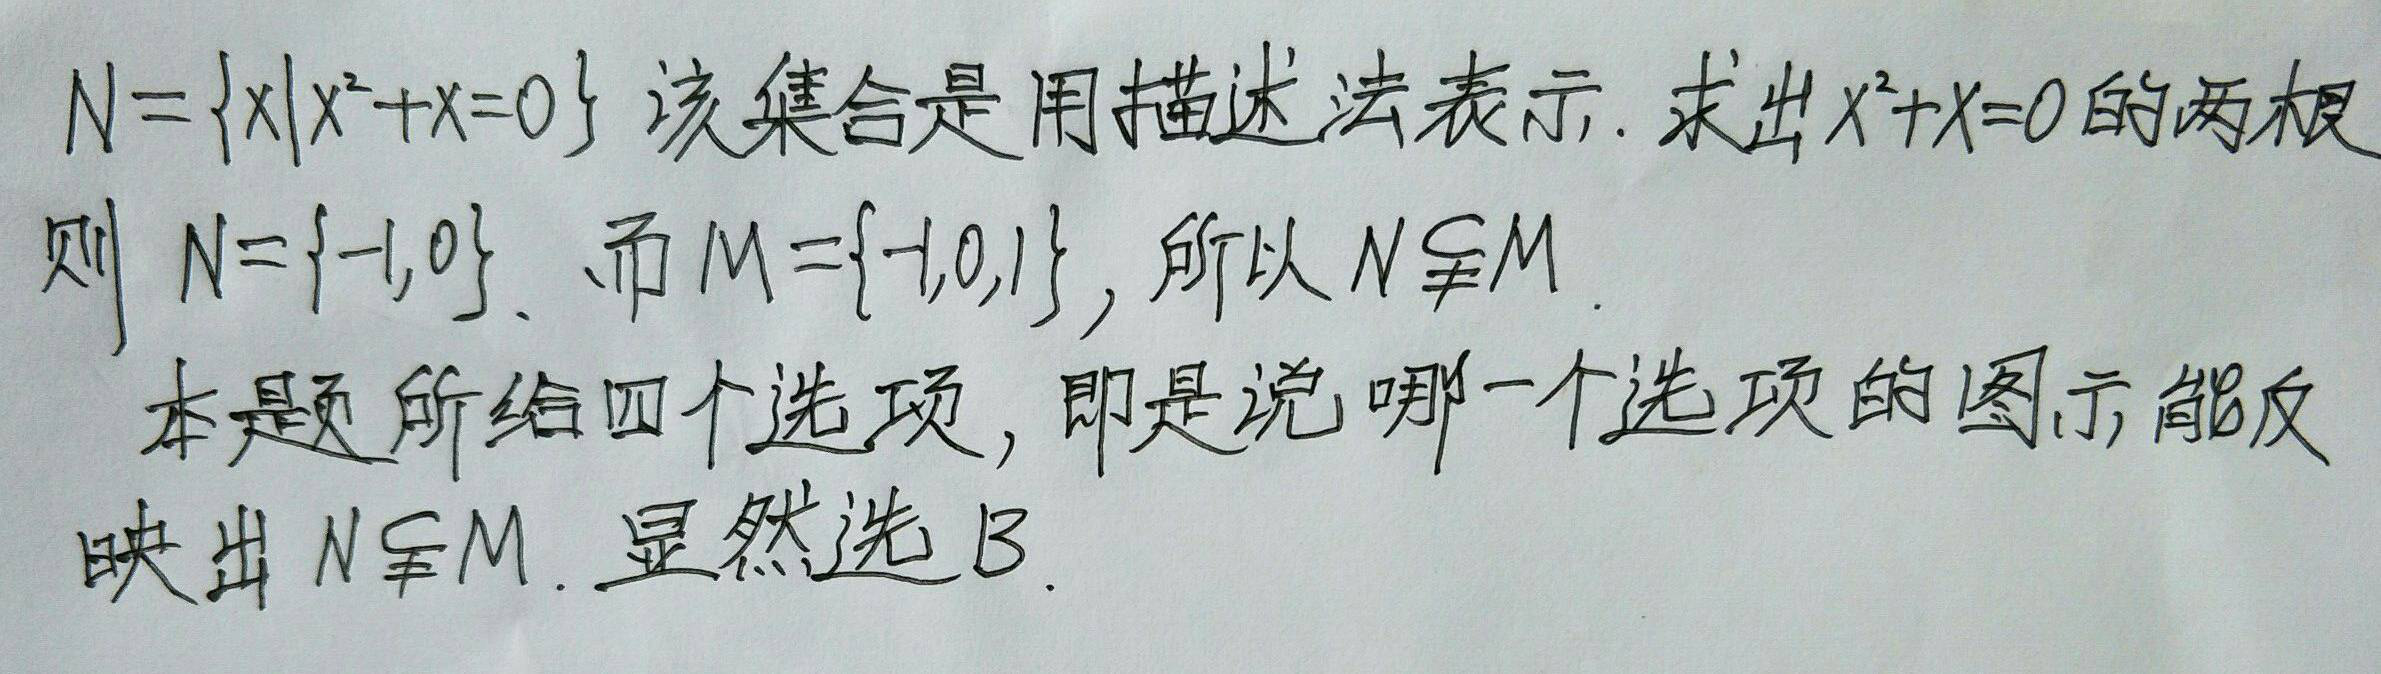 N={x|x²+x=0} 该集合是用描述法表示. 求出x²+x=0的两根
则 N={-1,0}、而M={-1,0,1}, 所以N⫋M.
本题所给四个选项, 即是说哪一个选项的图示能反
映出N⫋M. 显然选B.